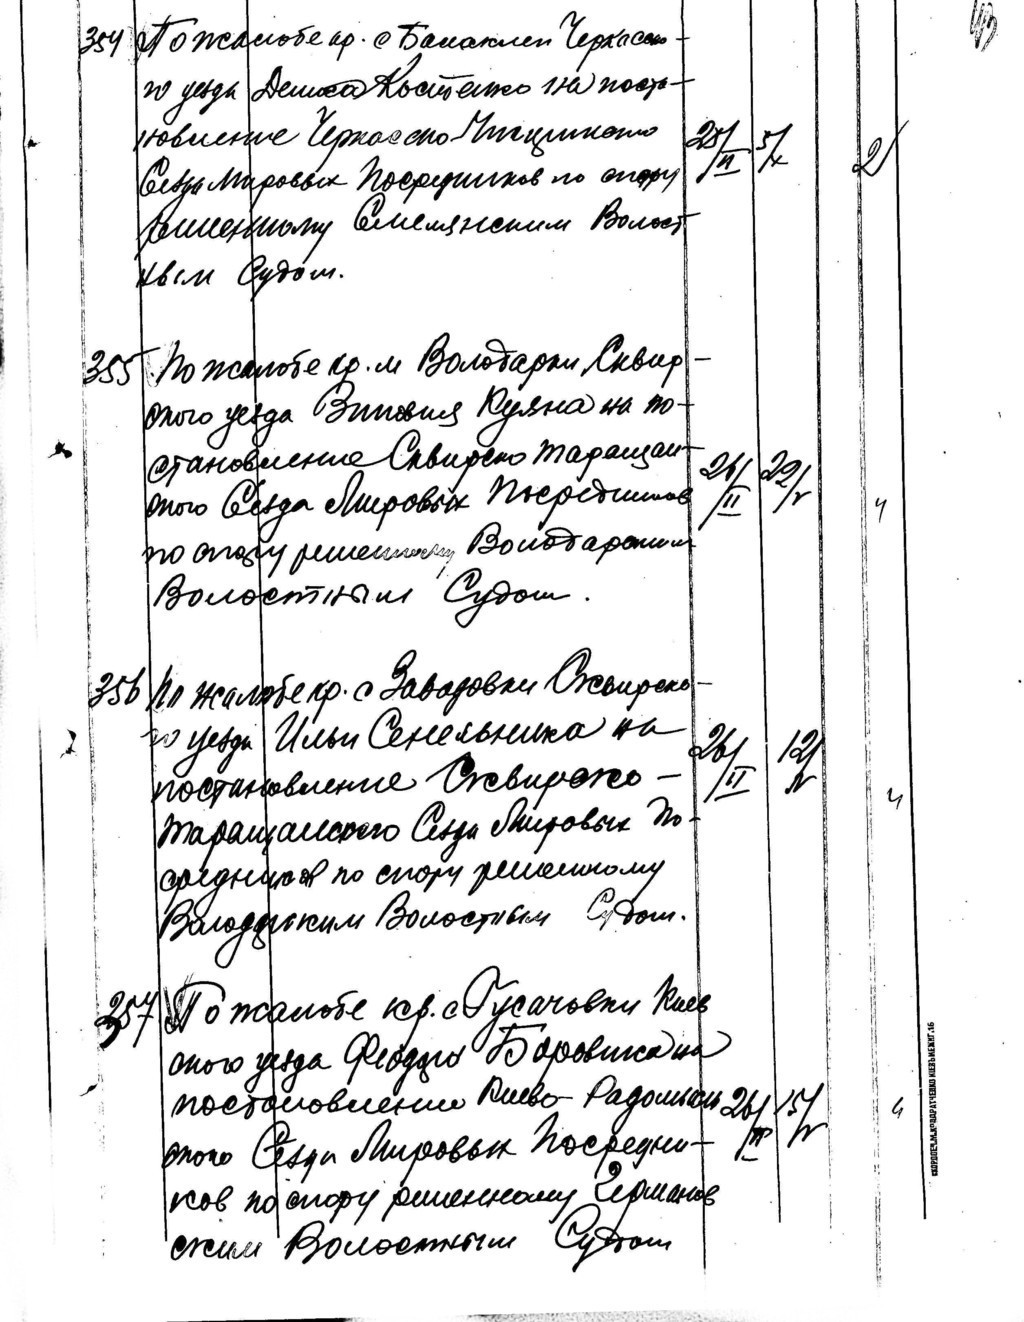 354 По жалобе кр. с Балаклеи Черкасско-
го уезда Дениса Костенко на поста-
новление Черкасско-Чигиринского
Сезда Мировых Посредников по спору
решенному Смелянским Волост
ным Судом.
25/II 5/X 2
355 По жалобе кр. м Володарки Сквир-
ского уезда Зиновия Куяна на по-
становление Сквирско Таращан-
ского Сезда Мировых Посредников
по спору решенному Володарским
Волостным Судом.
26/II 22/V 4
356 По жалобе кр. с Завадовки Сквирско-
го уезда Ильи Сенельника на
постановление Сквирско-
Таращанского Сезда Мировых По-
средников по спору решенному
Володарским Волостным Судом.
26/II 12/V 4
357 По жалобе кр. с Гусачовки Киев
ского уезда Феодора Боровика на
постановление Киево-Радомысль
ского Сезда Мировых Посредни-
ков по спору решенному Германов
ским Волостным Судом
26/II 15/V 4